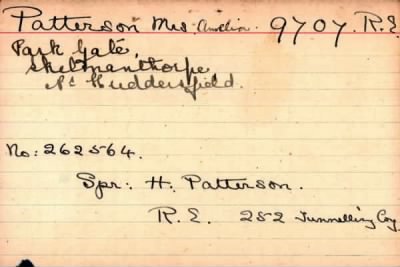 Patterson Mrs Amelia. 9707. R.E.
Park Gate,
Skelmanthorpe,
Nr Huddersfield.
No: 262564.
Spr: H. Patterson.
R.E. 252 Tunnelling Coy